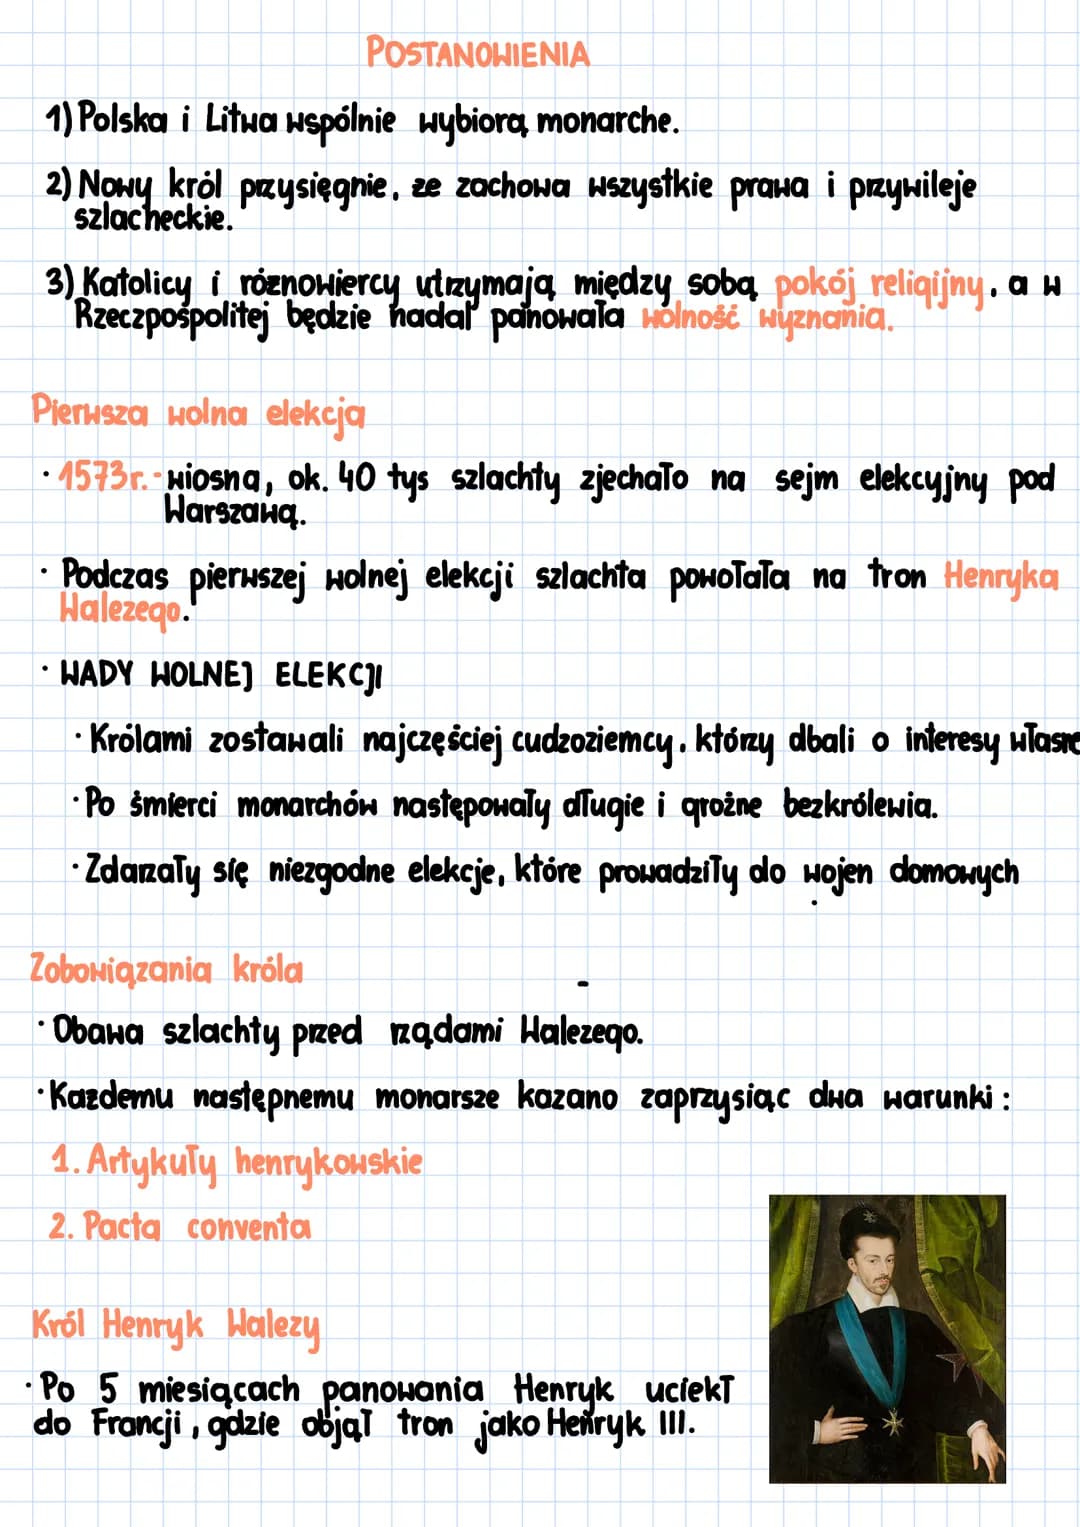 POSTANOWIENIA
1) Polska i Litwa wspólnie wybiorą monarche.
2) Nowy król przysięgnie, że zachowa wszystkie prawa i przywileje
szlacheckie.
3) Katolicy i różnowiercy utrzymają między sobą pokój religijny, a w
Rzeczpospolitej będzie nadal panowała wolność wyznania.
Pierwsza wolna elekcja
· 1573r. - wiosną, ok. 40 tys szlachty zjechało na sejm elekcyjny pod
Warszawą.
· Podczas pierwszej wolnej elekcji szlachta powołała na tron Henryka
Walezego.
· WADY WOLNEJ ELEKCJI
· Królami zostawali najczęściej cudzoziemcy, którzy dbali o interesy własne
· Po śmierci monarchów następowały długie i groźne bezkrólewia.
· Zdarzały się niezgodne elekcje, które prowadziły do wojen domowych
.
Zobowiązania króla
-
· Obawa szlachty przed rządami Walezego.
· Każdemu następnemu monarsze kazano zaprzysiąc dwa warunki:
1. Artykuły henrykowskie
2. Pacta conventa
Król Henryk Walezy
· Po 5 miesiącach panowania Henryk uciekł
do Francji, gdzie objął tron jako Henryk III.